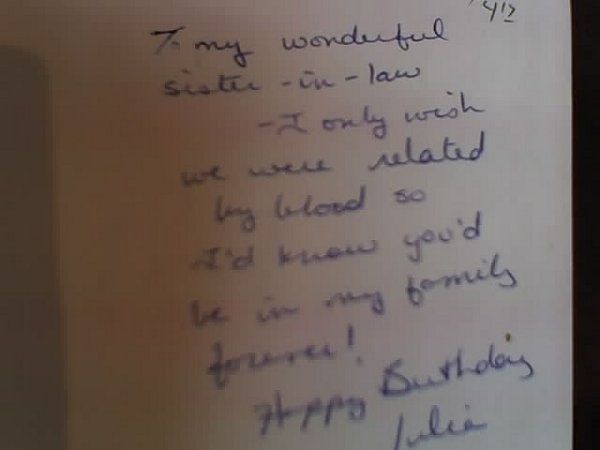 4 1/2
To my wonderful
sister-in-law
-I only wish
we were related
by blood so
I'd know you'd
be in my family
forever!
Happy Birthday
Julie